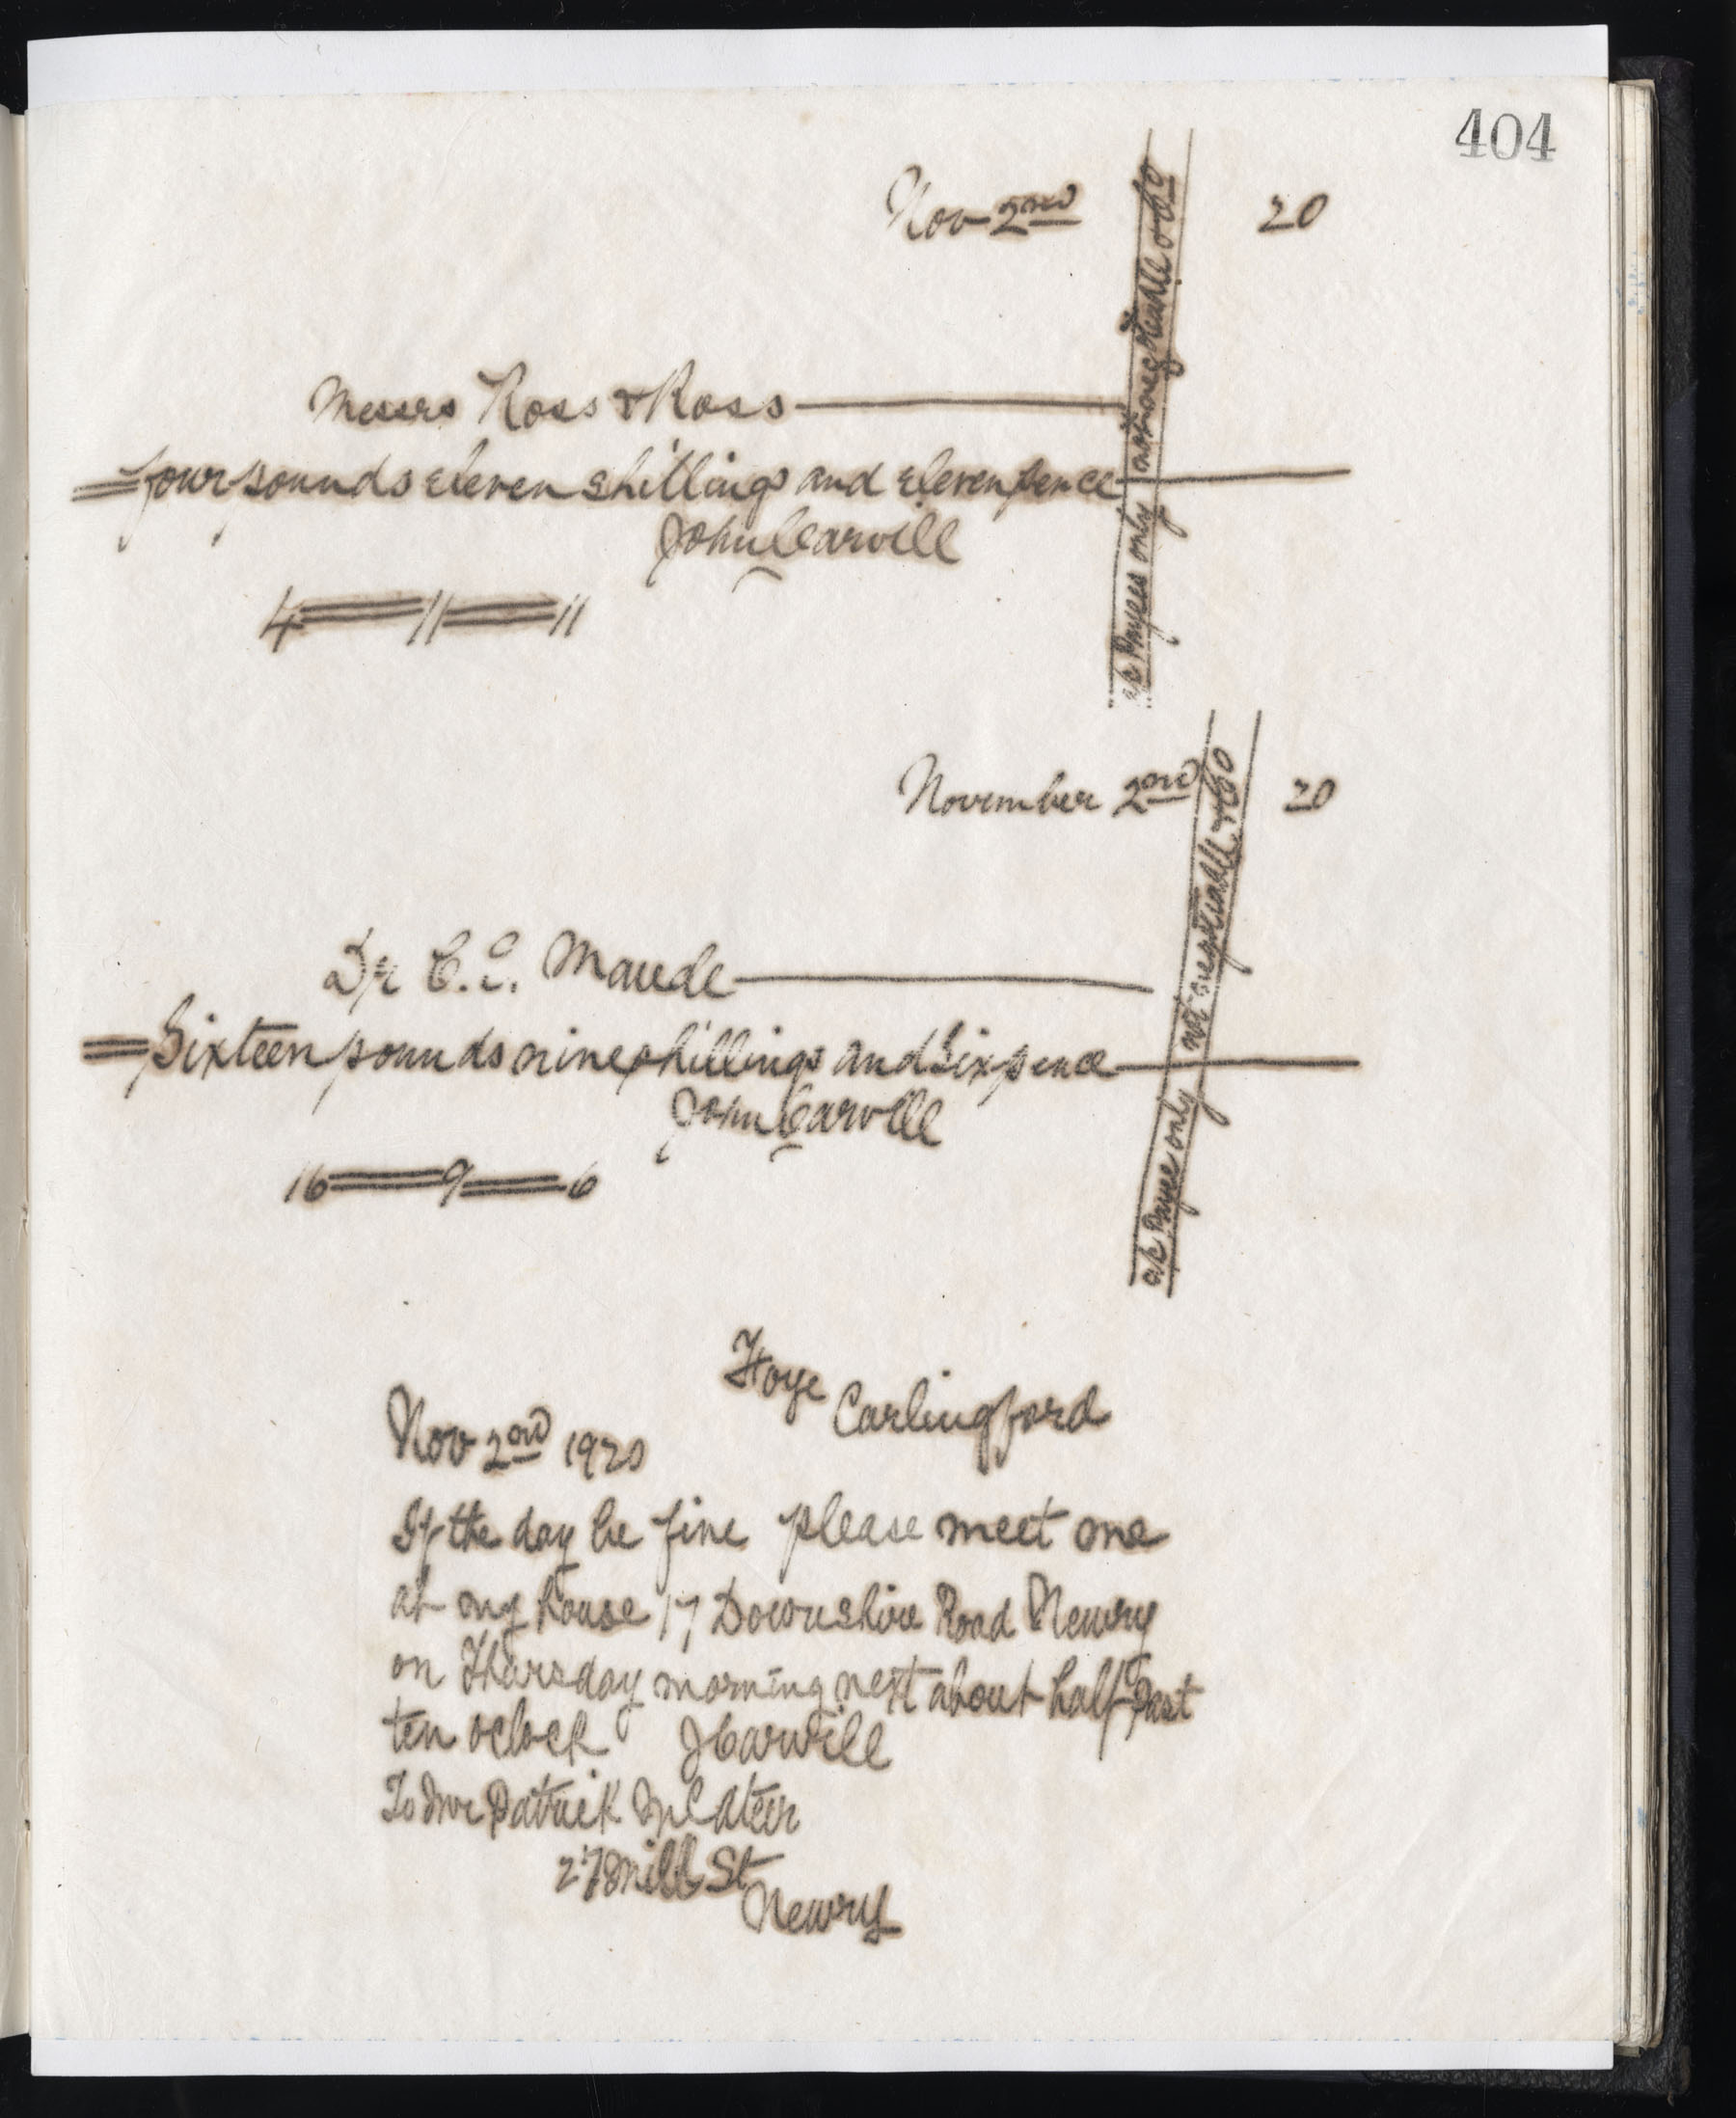 404
Nov 2nd 20
Messrs Ross & Ross
four pounds eleven shillings and eleven pence
John Carvill
4 11 11
a/c Payees only not negotiable & Co
November 2nd 20
Dr C. E. Maude
Sixteen pounds nine shillings and Six pence
John Carvill
16 9 6
a/c Payee only not negotiable & Co
Carlingford
Nov 2nd 1920
If the day be fine please meet me
at my house 17 Downshire Road Newry
on Thursday morning next about half past
ten oclock JCarvill
To Mr Patrick McAteer
27 Mill St
Newry